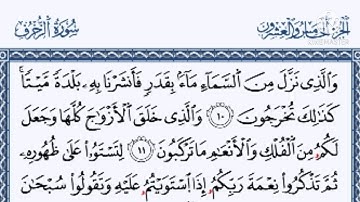 الجزء الخامس والعشرون سورة الزخرف
وَالَّذِى نَزَّلَ مِنَ السَّمَآءِ مَآءًۢ بِقَدَرٍ فَأَنشَرْنَا بِهِۦ بَلْدَةً مَّيْتًاۚ
كَذَٰلِكَ تُخْرَجُونَ ۝١٠ وَالَّذِى خَلَقَ الْأَزْوَٰجَ كُلَّهَا وَجَعَلَ
لَكُم مِّنَ الْفُلْكِ وَالْأَنْعَٰمِ مَا تَرْكَبُونَ ۝١١ لِتَسْتَوُۥا۟ عَلَىٰ ظُهُورِهِۦ
ثُمَّ تَذْكُرُوا۟ نِعْمَةَ رَبِّكُمْ إِذَا اسْتَوَيْتُمْ عَلَيْهِ وَتَقُولُوا۟ سُبْحَٰنَ